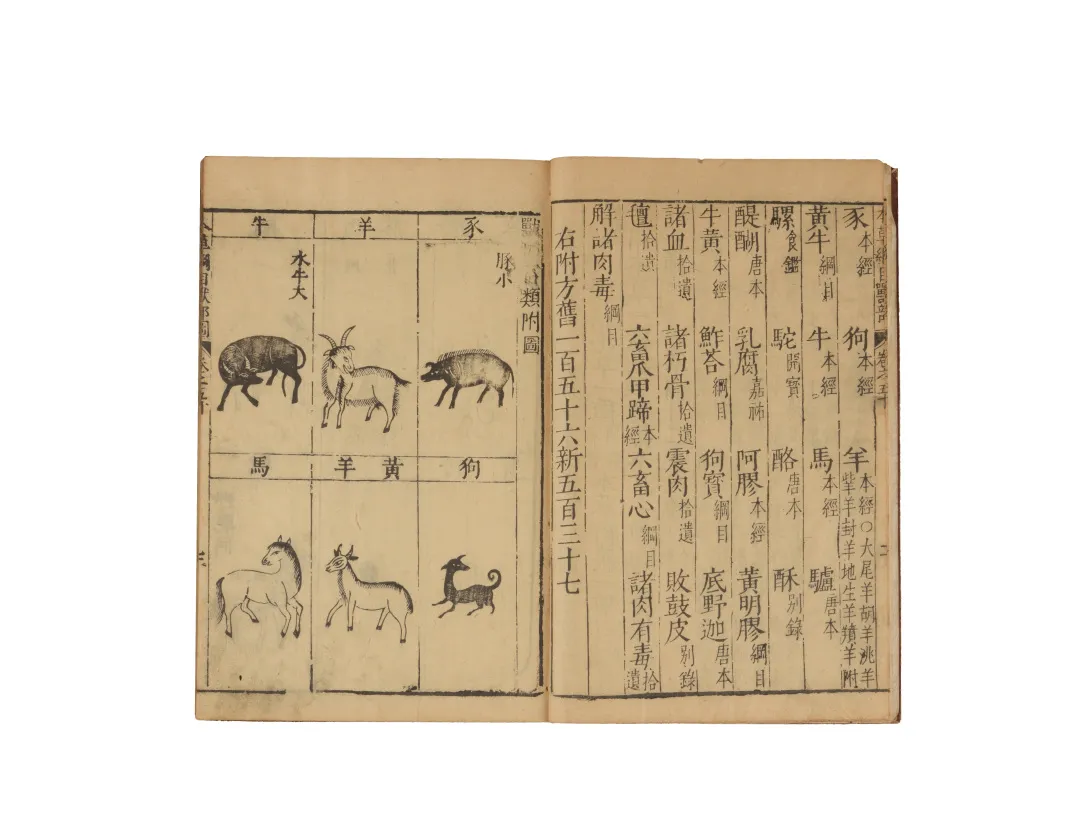 本草綱目獸部 卷之五十
豕本經 狗本經 羊本經○大尾羊胡羊洮羊 羊封羊地生羊羵羊附
黃牛綱目 牛本經 馬本經 驢唐本
騾食鑑 駝開寶 酪唐本 酥別錄
醍醐唐本 乳腐嘉祐 阿膠本經 黃明膠綱目
牛黃本經 鮓荅綱目 狗寶綱目 底野迦唐本
諸血拾遺 諸朽骨拾遺 震肉拾遺 敗鼓皮別錄
氊拾遺 六畜爪甲蹄本經 六畜心綱目 諸肉有毒拾遺
解諸肉毒綱目
右附方舊一百五十六新五百三十七
類附圖
豕
豚小
羊
牛
水牛大
狗
黃羊
馬